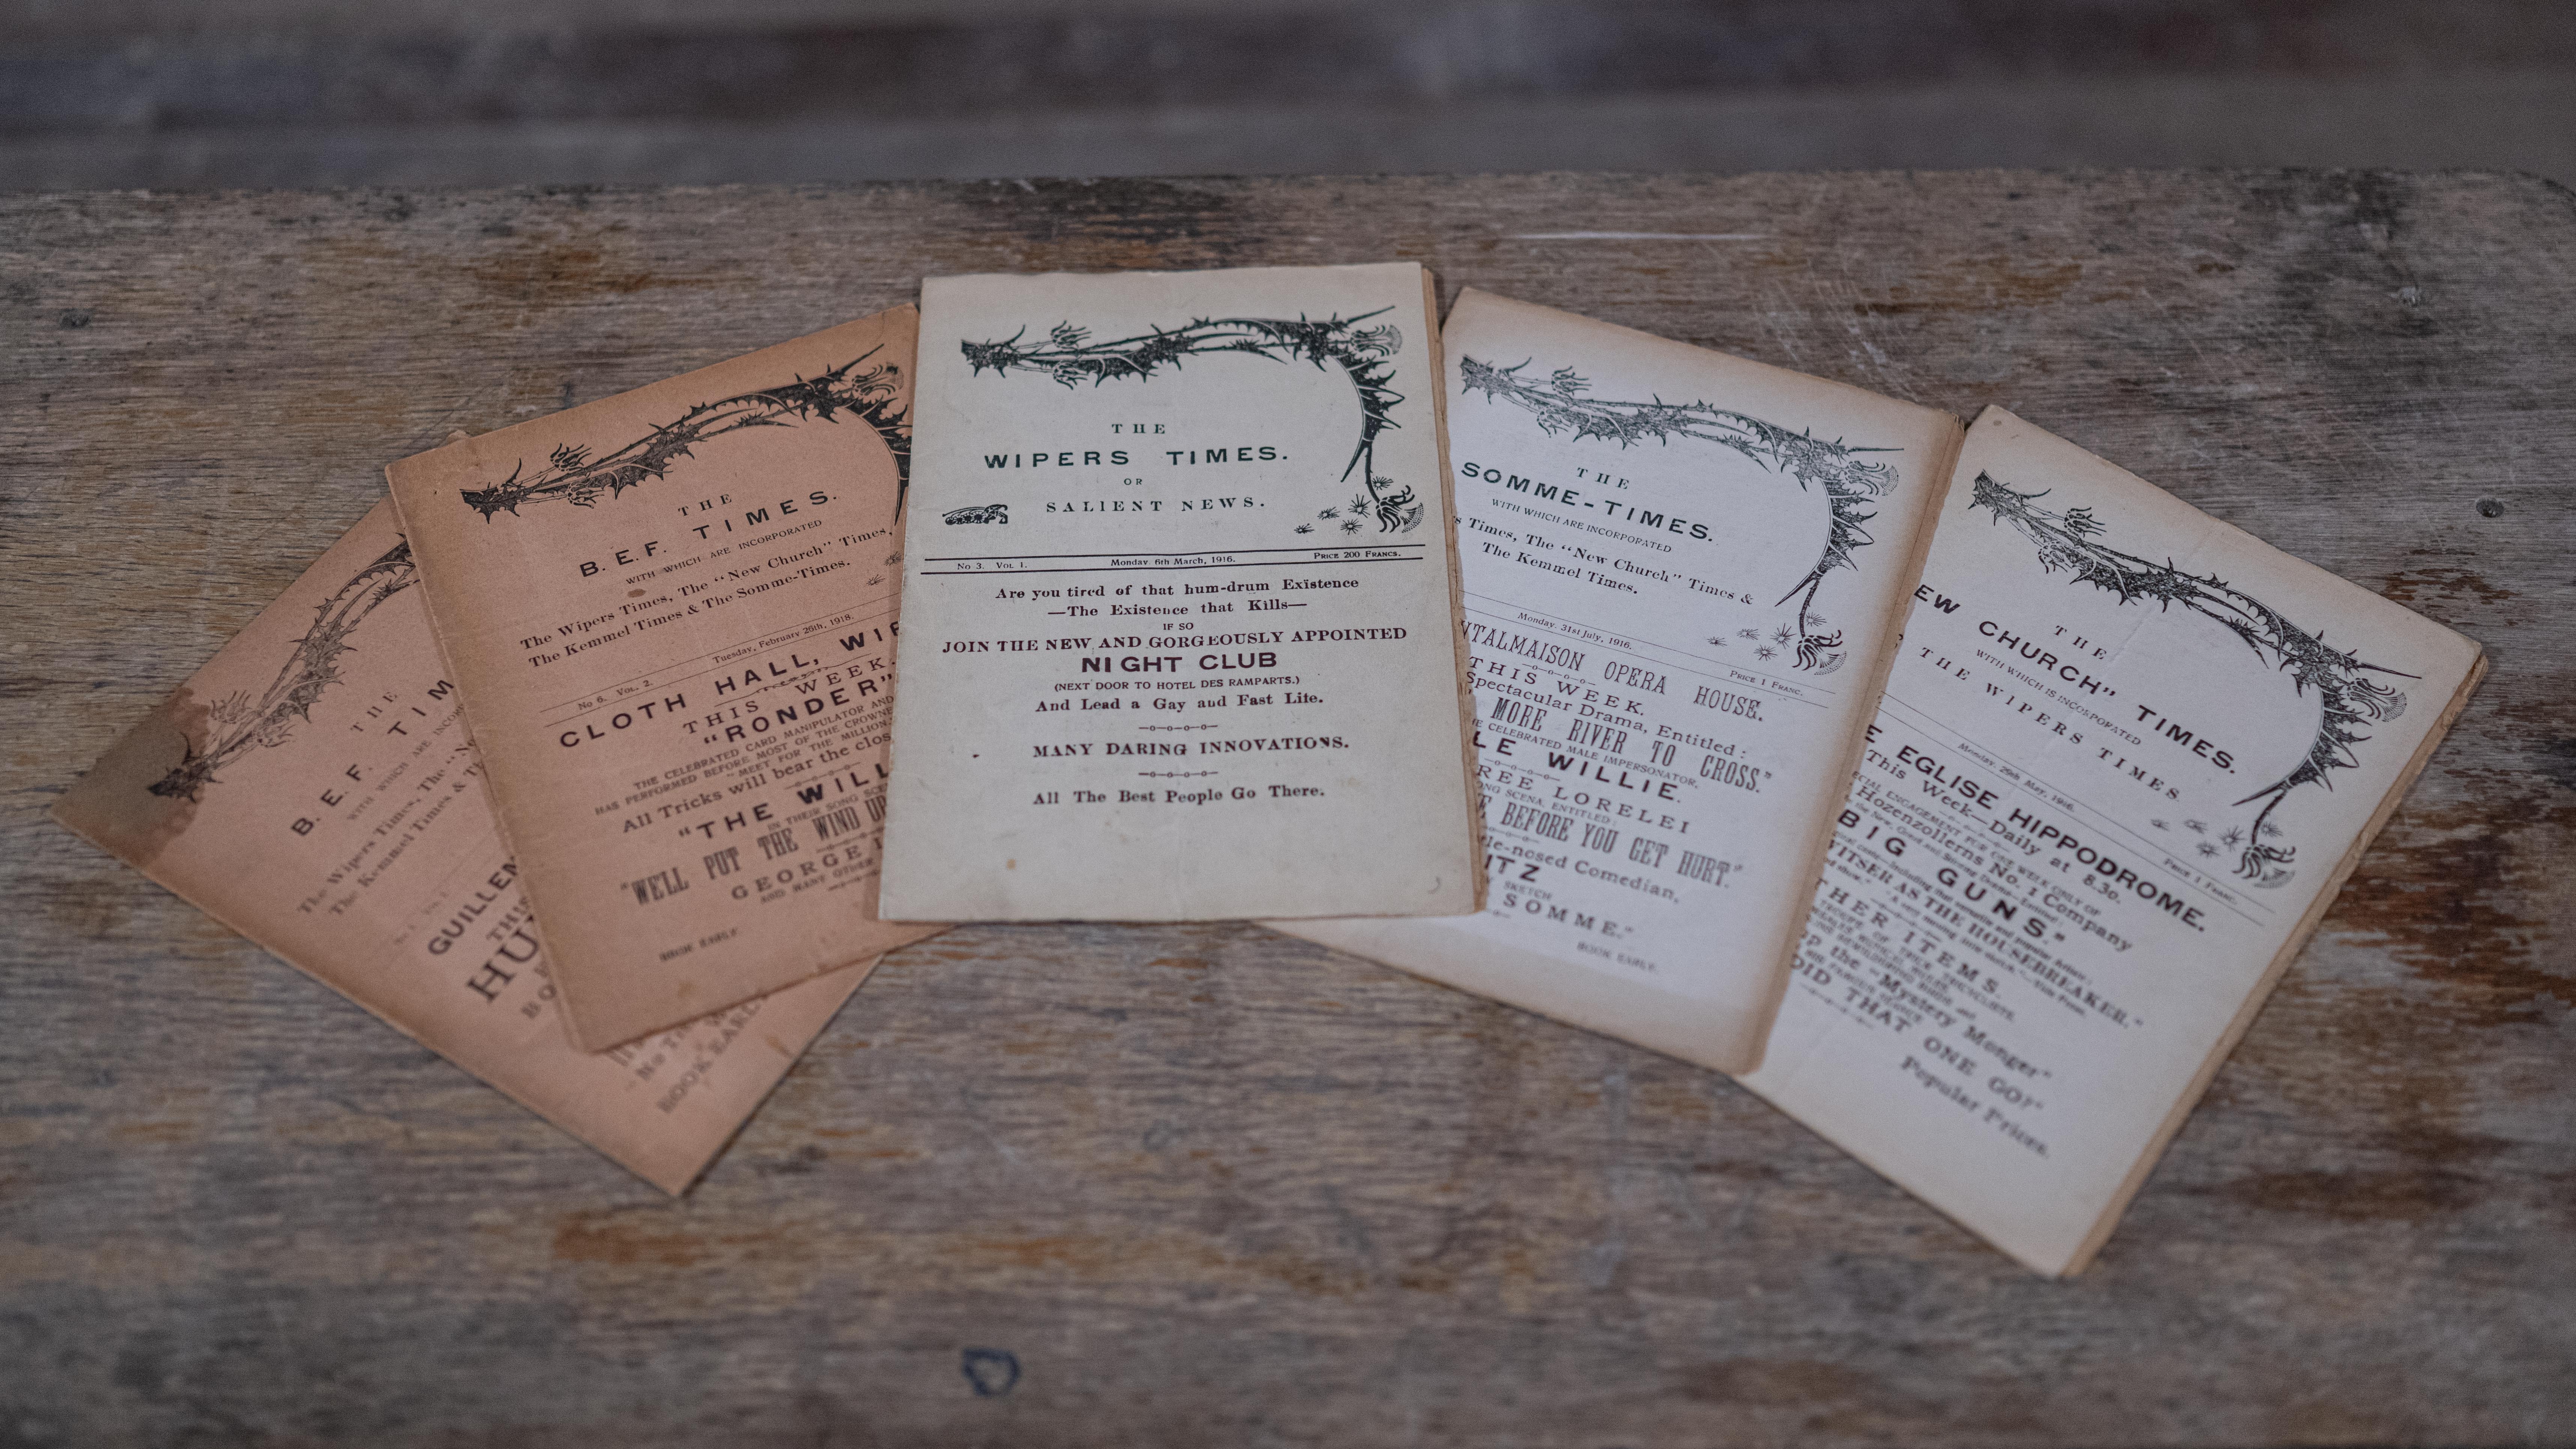 THE
B. E. F. TIM
WITH WHICH ARE INCOR
The Wipers Times, The "N
The Kemmel Times & Th
GUILLEM
THIS
HU
BO
BOOK EARLY
THE
B. E. F. TIMES.
WITH WHICH ARE INCORPORATED
The Wipers Times, The "New Church" Times,
The Kemmel Times & The Somme-Times.
No 6. Vol. 2. Tuesday, February 26th, 1918.
CLOTH HALL, WIP
THIS WEEK.
"RONDER"
THE CELEBRATED CARD MANIPULATOR AND
HAS PERFORMED BEFORE MOST OF THE CROWNE
"MEET FOR THE MILLION
All Tricks will bear the clos
"THE WILL
IN THEIR SONG SCE
"WE'LL PUT THE WIND UP
GEORGE
AND MANY OTHER
BOOK EARLY.
THE
WIPERS TIMES.
OR
SALIENT NEWS.
No 3. Vol 1. Monday 6th March, 1916. Price 200 Francs.
Are you tired of that hum-drum Existence
—The Existence that Kills—
IF SO
JOIN THE NEW AND GORGEOUSLY APPOINTED
NIGHT CLUB
(NEXT DOOR TO HOTEL DES RAMPARTS.)
And Lead a Gay and Fast Life.
MANY DARING INNOVATIONS.
All The Best People Go There.
THE
SOMME-TIMES.
WITH WHICH ARE INCORPORATED
s Times, The "New Church" Times &
The Kemmel Times.
Monday, 31st July, 1916. Price 1 Franc.
NTALMAISON OPERA HOUSE.
THIS WEEK.
Spectacular Drama, Entitled:
MORE RIVER TO CROSS."
E CELEBRATED MALE IMPERSONATOR,
LE WILLIE.
REE LORELEI
ONG SCENA, ENTITLED:
E BEFORE YOU GET HURT."
le-nosed Comedian,
ITZ
SKETCH
SOMME."
BOOK EARLY.
THE
EW CHURCH" TIMES.
WITH WHICH IS INCORPORATED
THE WIPERS TIMES
Monday, 29th May, 1916. Price 1 Franc.
E EGLISE HIPPODROME.
This Week—Daily at 8.30.
ECIAL ENGAGEMENT FOR ONE WEEK ONLY OF
Hozenzollerns No. 1 Company
BIG GUNS."
ITSER AS THE HOUSEBREAKER."
THER ITEMS
P the "Mystery Monger"
DID THAT ONE GO?"
Popular Prices.